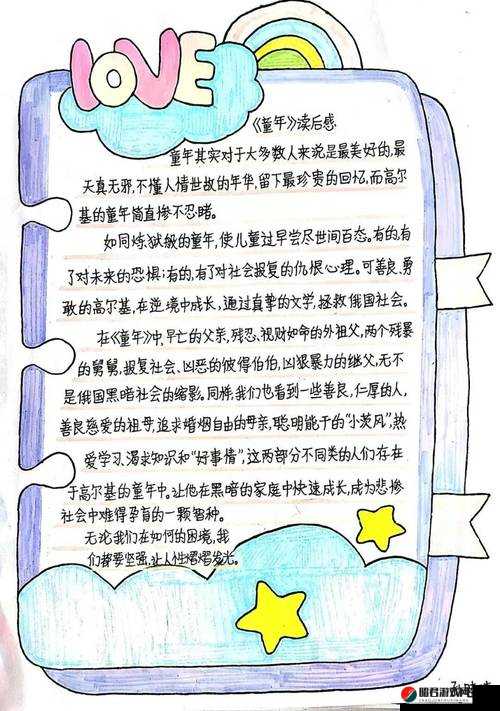 LOVE
《童年》读后感
童年其实对于大多数人来说是最美好的,最
天真无邪,不懂人情世故的年华,留下最珍贵的回忆,而高尔
基的童年简直惨不忍睹。
如同炼狱般的童年,使儿童过早尝尽世间百态。有的,有
了对未来的恐惧;有的,有了对社会报复的仇恨心理。可善良、勇
敢的高尔基,在逆境中成长,通过真挚的文学,拯救俄国社会。
在《童年》中,早亡的父亲,残忍、视财如命的外祖父,两个残暴
的舅舅,报复社会、凶恶的彼得伯伯,凶狠暴力的继父,无不
是俄国黑暗社会的缩影。同样,我们也看到一些善良,仁厚的人,
善良慈爱的祖母,追求婚烟自由的母亲,聪明能干的“小茨风”,热
爱学习、渴求知识和“好事情”,这两部分不同类的人们存在
于高尔基的童年中。让他在黑暗的家庭中快速成长,成为悲惨
社会中难得孕育的一颗智种。
无论我们在如何的困境,我
们都要坚强,让人性熠熠发光。